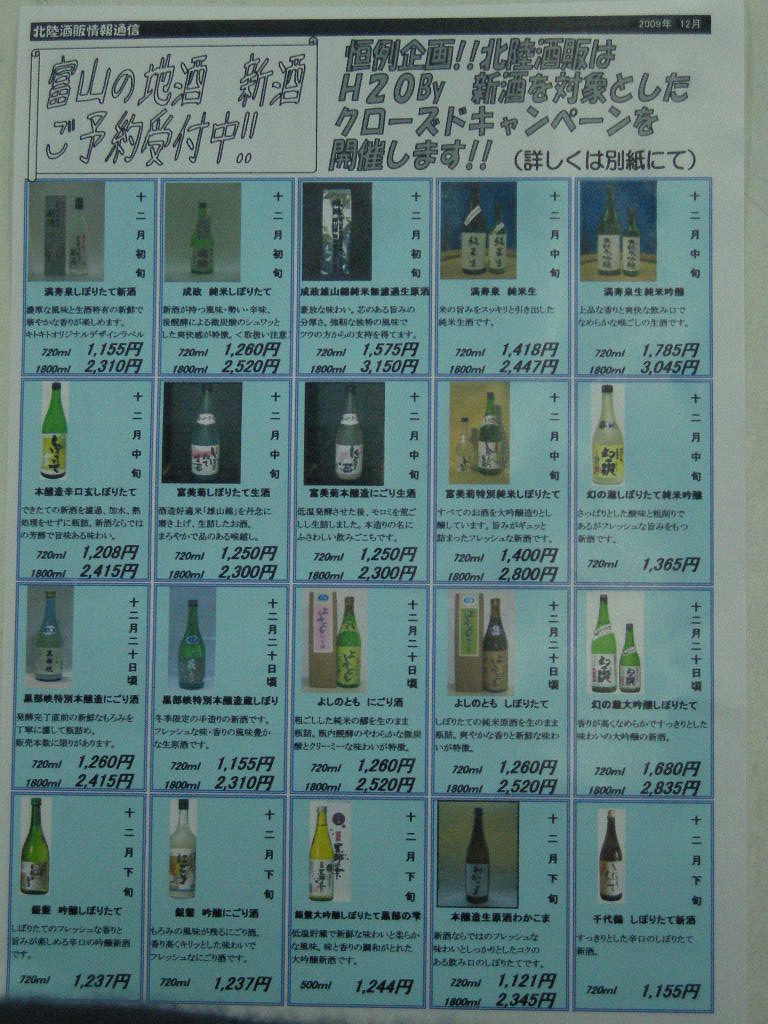 北陸酒販情報通信
2009年 12月
富山の地酒 新酒
ご予約受付中!!
恒例企画!!北陸酒販は
H20By 新酒を対象とした
クローズドキャンペーンを
開催します!!
(詳しくは別紙にて)
十二月初旬
満寿泉しぼりたて新酒
濃厚な風味と生酒特有の新鮮で
華やかな香りが楽しめます。
キトキトオリジナルデザインラベル
720ml 1,155円
1800ml 2,310円
十二月初旬
成政 純米しぼりたて
新酒が持つ風味・勢い・辛味、
後醗酵による微炭酸のシュワッと
した爽快感が特徴。<取扱い注意
720ml 1,260円
1800ml 2,520円
十二月初旬
成政雄山錦純米無濾過生原酒
豪放な味わい。芯のある旨みの
分厚さ。強靭な独特の風味で
ツウの方からの支持を得てます。
720ml 1,575円
1800ml 3,150円
十二月中旬
満寿泉 純米生
米の旨みをスッキリと引き出した
純米生酒です。
720ml 1,418円
1800ml 2,447円
十二月中旬
満寿泉生純米吟醸
上品な香りと爽快な飲み口で
なめらかな喉ごしの生酒です。
720ml 1,785円
1800ml 3,045円
十二月中旬
本醸造辛口玄しぼりたて
できたての新酒を濾過、加水、熱
処理をせずに瓶詰。新酒ならでは
の芳醇で旨味ある味わい。
720ml 1,208円
1800ml 2,415円
十二月中旬
富美菊しぼりたて生酒
酒造好適米「雄山錦」を丹念に
磨き上げ、生詰したお酒。
まろやかで品のある喉越し。
720ml 1,250円
1800ml 2,300円
十二月中旬
富美菊本醸造にごり生酒
低温発酵させた後、モロミを荒ご
しし生詰しました。本造りの名に
ふさわしい飲みごこちです。
720ml 1,250円
1800ml 2,300円
十二月中旬
富美菊特別純米しぼりたて
すべてのお酒を大吟醸造りとし
醸しています。旨みがギュッと
詰まったフレッシュな新酒です。
720ml 1,400円
1800ml 2,800円
十二月中旬
幻の瀧しぼりたて純米吟醸
さっぱりとした酸味と粗削りで
あるがフレッシュな旨みをもつ
新酒です。
720ml 1,365円
十二月二十日頃
黒部峡特別本醸造にごり酒
発酵完了直前の新鮮なもろみを
丁寧に濾して瓶詰め。
販売本数に限りがあります。
720ml 1,260円
1800ml 2,415円
十二月二十日頃
黒部峡特別本醸造蔵しぼり
冬季限定の手造りの新酒です。
フレッシュな味・香りの風味豊か
な生原酒です。
720ml 1,155円
1800ml 2,310円
十二月二十日頃
よしのとも にごり酒
粗ごしした純米の醪を生のまま
瓶詰。瓶内醗酵のやわらかな微炭
酸とクリーミーな味わいが特徴。
720ml 1,260円
1800ml 2,520円
十二月二十日頃
よしのとも しぼりたて
しぼりたての純米原酒を生のまま
瓶詰。爽やかな香りと新鮮な味わ
いが特徴。
720ml 1,260円
1800ml 2,520円
十二月二十日頃
幻の瀧大吟醸しぼりたて
香りが高くなめらかですっきりとした
味わいの大吟醸の新酒。
720ml 1,680円
1800ml 2,835円
十二月下旬
銀盤 吟醸しぼりたて
しぼりたてのフレッシュな香りと
旨みが楽しめる辛口の吟醸新酒
です。
720ml 1,237円
十二月下旬
銀盤 吟醸にごり酒
もろみの風味が残るにごり酒。
香り高くキリッとした味わいで
フレッシュなにごり酒です。
720ml 1,237円
十二月下旬
銀盤大吟醸しぼりたて黒部の雫
低温貯蔵で新鮮な味わいと柔らか
な風味。味と香りの調和がとれた
大吟醸新酒です。
500ml 1,244円
十二月下旬
本醸造生原酒わかこま
新酒ならではのフレッシュな
味わいとしっかりとしたコクの
ある飲み口のしぼりたてです。
720ml 1,121円
1800ml 2,345円
十二月下旬
千代鶴 しぼりたて新酒
すっきりとした辛口のしぼりたて
新酒。
720ml 1,155円